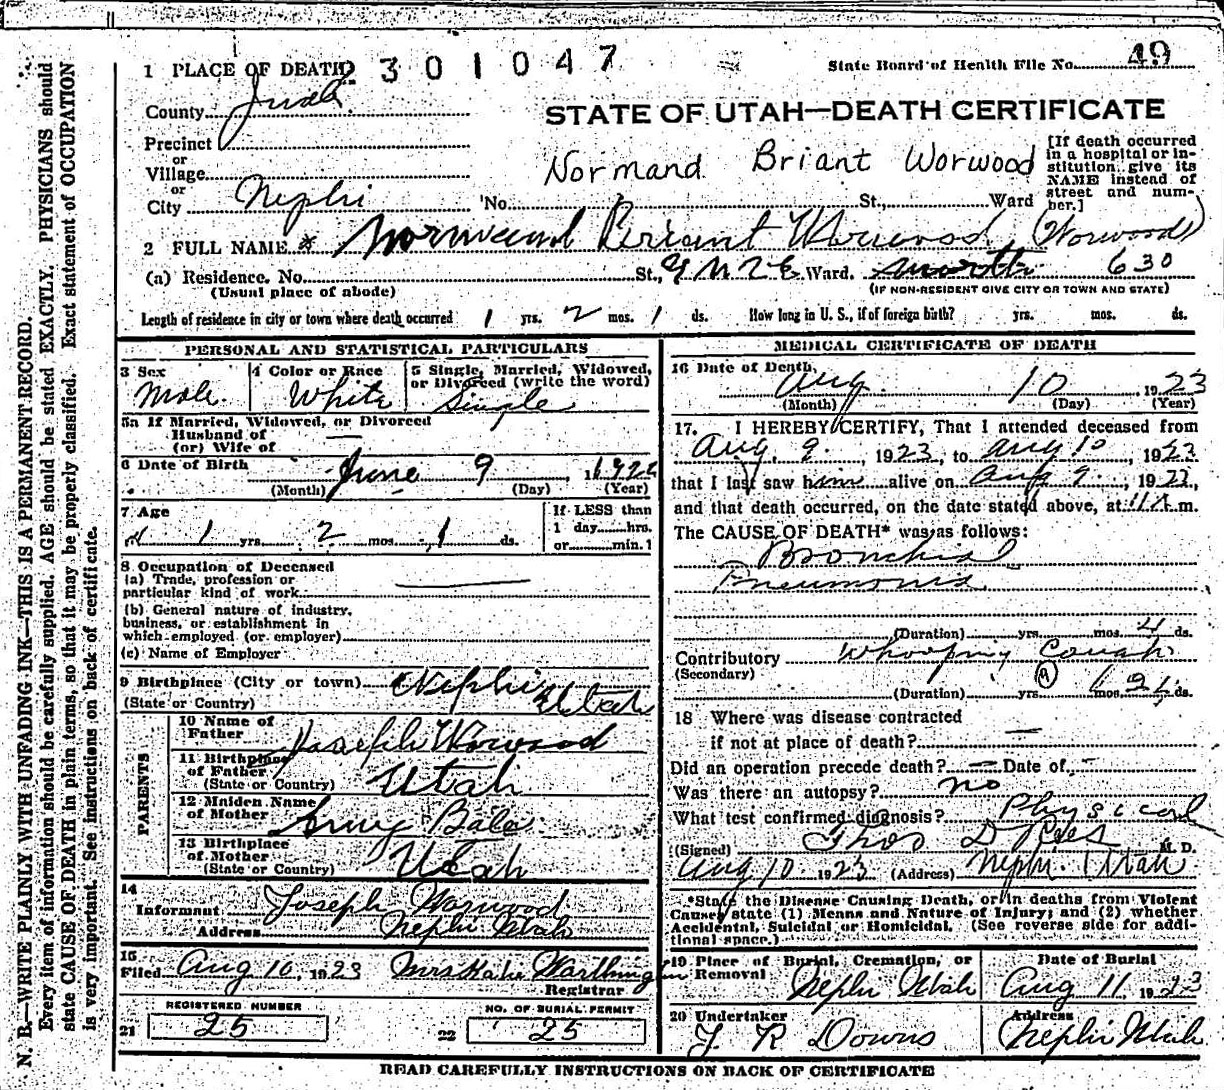 49
2301047
1 PLACE OF DEATH
State Board of Health File No.
County Juab
STATE OF UTAH—DEATH CERTIFICATE
Precinct
or
Village
or
City Nephi
Normand Briant Worwood
[If death occurred in a hospital or in-
stitution, give its
NAME instead of
street and num-
ber.]
No. St., Ward
2 FULL NAME Normand Briant Worwood (Worwood)
(a) Residence. No. St., Ward. North 630
(Usual place of abode)
(IF NON-RESIDENT GIVE CITY OR TOWN AND STATE)
Length of residence in city or town where death occurred 1 yrs. 2 mos. 1 ds. How long in U. S., if of foreign birth? yrs. mos. ds.
PERSONAL AND STATISTICAL PARTICULARS
3 Sex
Male
4 Color or Race
White
5 Single, Married, Widowed,
or Divorced (write the word)
Single
5a If Married, Widowed, or Divorced
Husband of
(or) Wife of
6 Date of Birth June 9 1922
(Month) (Day) (Year)
7 Age
1 yrs. 2 mos. 1 ds.
If LESS than
1 day hrs.
or min.
8 Occupation of Deceased
(a) Trade, profession or
particular kind of work
(b) General nature of industry,
business, or establishment in
which employed (or employer)
(c) Name of Employer
9 Birthplace (City or town) Nephi
(State or Country) Utah
PARENTS
10 Name of
Father Joseph Worwood
11 Birthplace
of Father
(State or Country) Utah
12 Maiden Name
of Mother Amy Bale
13 Birthplace
of Mother
(State or Country) Utah
14
Informant Joseph Worwood
Address Nephi Utah
15
Filed Aug 10 1923 Mrs Kate Warthington
Registrar
REGISTERED NUMBER
21 25
NO. OF BURIAL PERMIT
22 25
MEDICAL CERTIFICATE OF DEATH
16 Date of Death,
Aug 10 1923
(Month) (Day) (Year)
17. I HEREBY CERTIFY, That I attended deceased from
Aug. 9, 1923, to Aug 10, 1923
that I last saw him alive on Aug 9, 1923,
and that death occurred, on the date stated above, at 11 A m.
The CAUSE OF DEATH* was as follows:
Bronchial
Pneumonia
(Duration) yrs. mos. 4 ds.
Contributory Whooping Cough
(Secondary)
(Duration) yrs. mos. ds.
18 Where was disease contracted
if not at place of death? —
Did an operation precede death? — Date of —
Was there an autopsy? no
What test confirmed diagnosis? Physical
(Signed) Thos D Rees M. D.
Aug 10 1923 (Address) Nephi Utah
*State the Disease Causing Death, or in deaths from Violent
Causes, state (1) Means and Nature of Injury; and (2) whether
Accidental, Suicidal or Homicidal. (See reverse side for addi-
tional space.)
19 Place of Burial, Cremation, or
Removal
Nephi Utah
Date of Burial
Aug 11 1923
20 Undertaker
J R Downs
Address
Nephi Utah
READ CAREFULLY INSTRUCTIONS ON BACK OF CERTIFICATE
N. B.—WRITE PLAINLY WITH UNFADING INK—THIS IS A PERMANENT RECORD.
Every item of information should be carefully supplied. AGE should be stated EXACTLY. PHYSICIANS should
state CAUSE OF DEATH in plain terms, so that it may be properly classified. Exact statement of OCCUPATION
is very important. See instructions on back of certificate.